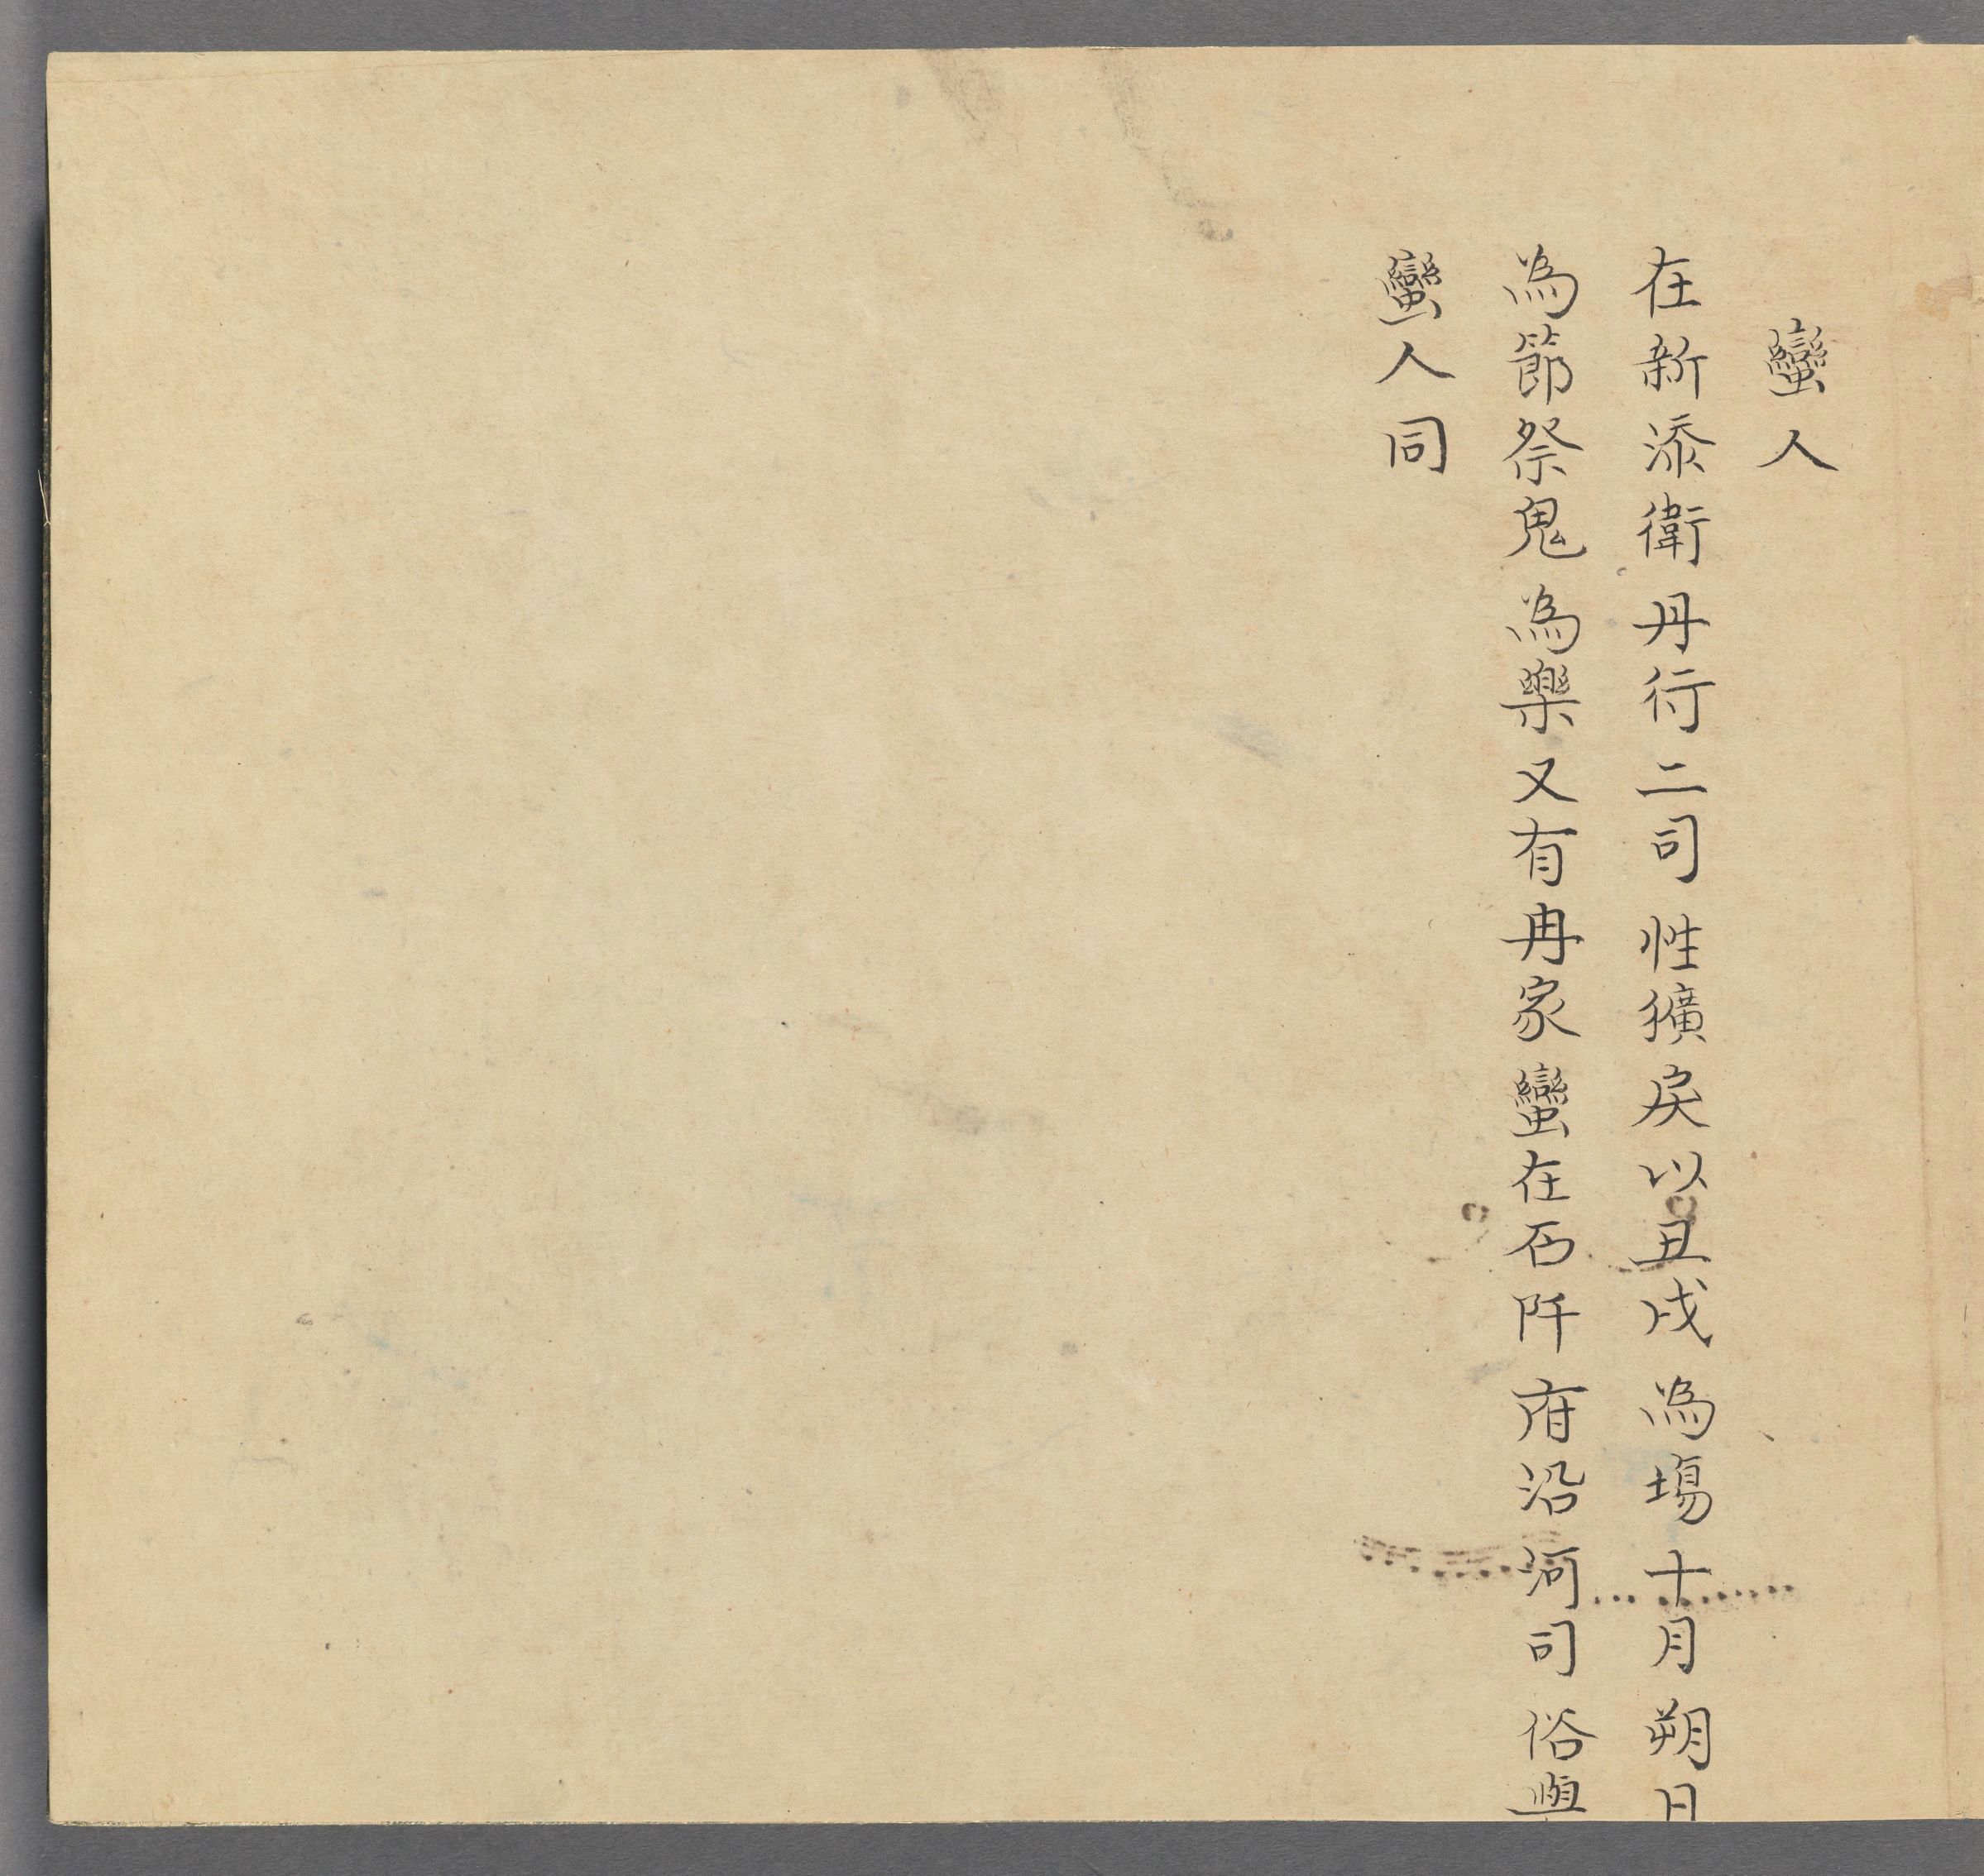 蠻人
在新添衛丹行二司性獷戾以丑戌為場十月朔日
為節祭鬼為樂又有冉家蠻在石阡府沿河司俗與
蠻人同